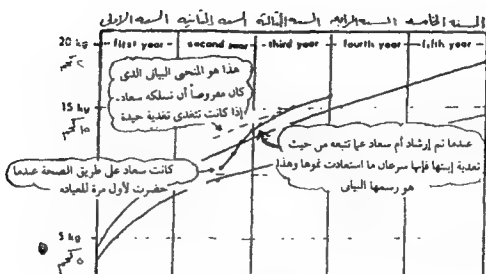 السنة الخامسة السنة الرابعة السنة الثالثة السنة الثانية السنة الأولى
first year second year third year fourth year fifth year
20 kg
٢٠ كجم
هذا هو المنحى البيانى الذى
كان مفروضاً أن تسلكه سعاد
إذا كانت تتغذى تغذية جيدة
15 kg
١٥ كجم
عندما تم إرشاد أم سعاد عما تتبعه من حيث
تغذية إبنتها فإنها سرعان ما استعادت نموها وهذا
هو رسمها البيانى
كانت سعاد على طريق الصحة عندما
حضرت لأول مرة للعيادة
5 kg
٥ كجم